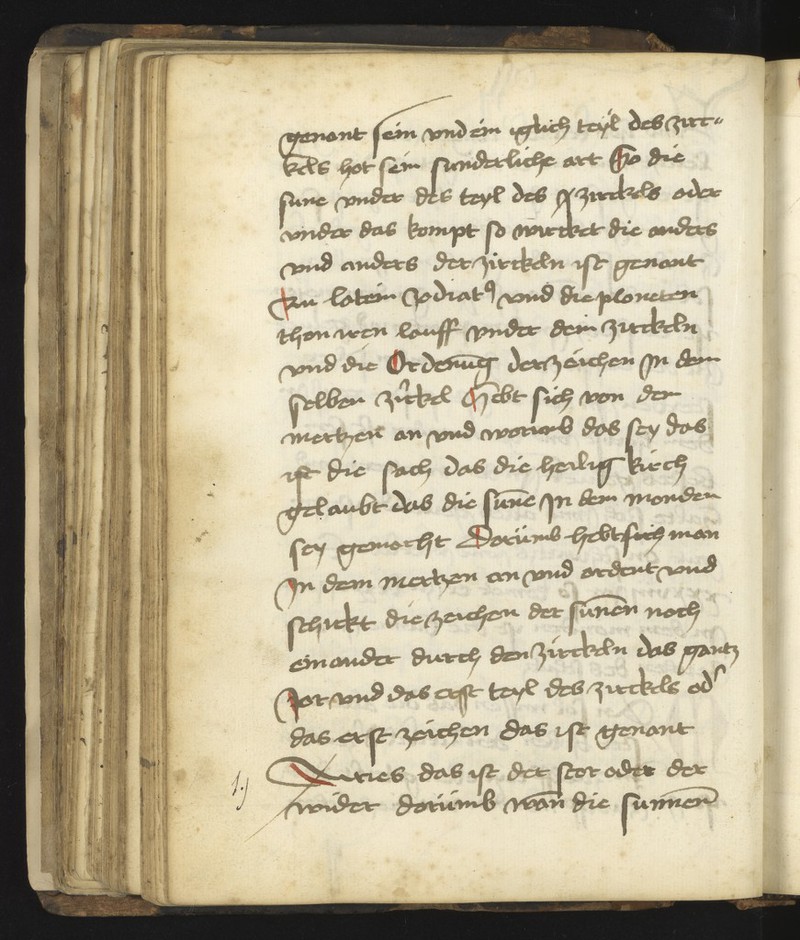 genant sein vnd ein iglich teyl des zirc-
kels hot sein sunderliche art So die
sune vnder des teyl des zirckels oder
vnder das kompt so wircket die anders
vnd anders der zirckeln ist genant
zu latein zodiacꝰ vnd die planeten
thon iren lauff vnder dem zirckeln
vnd die Ordenūg der zeichen In dem
selben zirckel Hebt sich von dem
mertzen an vnd worumb das sey das
ist die sach das die heilig kirch
gelaubt das die sūne In dem monden
sey gemacht Dorumb hebt sich man
In dem mertzen an vnd ordent vnd
schickt die zeichen der sunēn noch
einander durch den zirckeln das gantz
Jor vnd das erst teyl des zirckels od'
das erst zeichen das ist genant
1.) Aries das ist der ster oder der
wider dorumb wān die sunnen